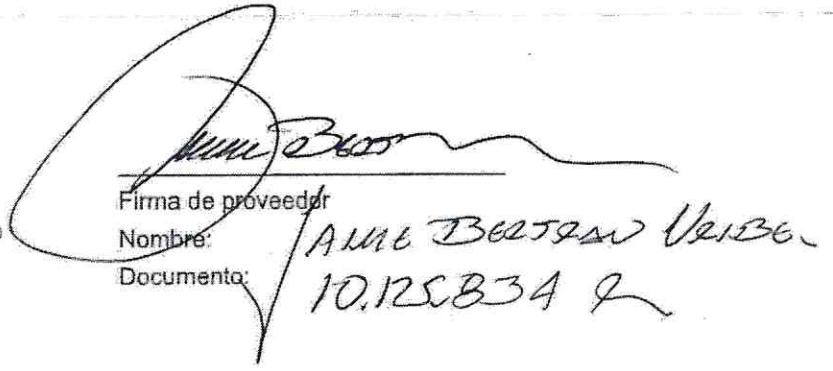 Firma de proveedor
Nombre: Beltran Uribe
Documento: 10.125.834